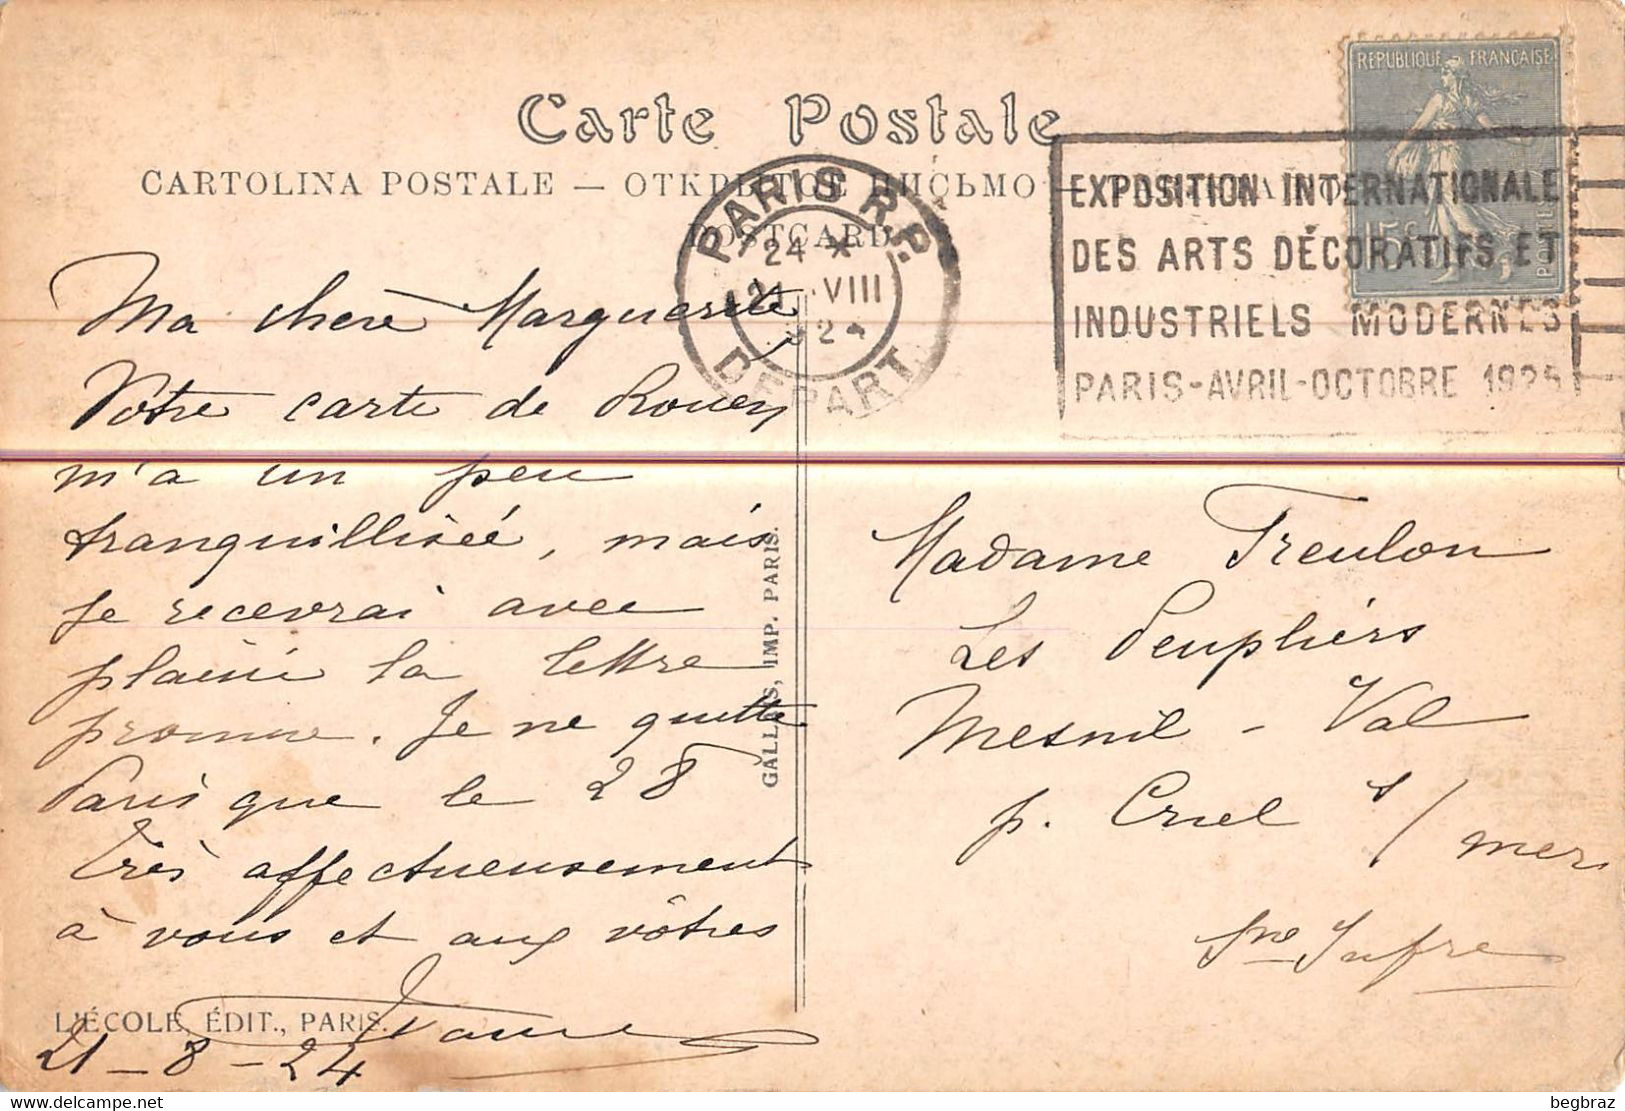 Carte Postale
CARTOLINA POSTALE — ОТКРЫТОЕ ПИСЬМО —
POSTCARD
PARIS R.P.
24 *
21 VIII
DEPART
REPUBLIQUE FRANÇAISE
15c
EXPOSITION INTERNATIONALE
DES ARTS DÉCORATIFS ET
INDUSTRIELS MODERNES
PARIS-AVRIL-OCTOBRE 1925
Ma chère Marguerite
Votre carte de Rouen
m'a un peu
tranquillisée, mais
je recevrai avec
plaisir la lettre
promise. Je ne quitte
Paris que le 28
Très affectueusement
à vous et aux vôtres
L'ÉCOLE, ÉDIT., PARIS.
21-8-24
GALLAIS, IMP. PARIS.
Madame Treulon
Les Peupliers
Mesnil-Val
p. Criel s/mer
Sne Infre
begbraz
delcampe.net